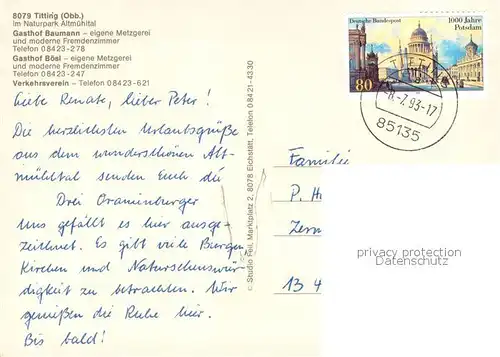 8079 Titting (Obb.)
Im Naturpark Altmühltal
Gasthof Baumann – eigene Metzgerei
und moderne Fremdenzimmer
Telefon 08423-278
Gasthof Bösl – eigene Metzgerei
und moderne Fremdenzimmer
Telefon 08423-247
Verkehrsverein – Telefon 08423-621
Liebe Renate, lieber Peter!
Die herzlichsten Urlaubsgrüße
aus dem wunderschönen Alt-
mühltal senden Euch die
Drei Oranienburger
Uns gefällt es hier ausge-
zeichnet. Es gibt viele Burgen,
Kirchen und Naturschenswür-
digkeit zu betrachten. Wir
genießen die Ruhe hier.
Bis bald!
© Studio Feil, Marktplatz 2, 8078 Eichstätt, Telefon 08421-4330
Deutsche Bundespost
1000 Jahre
Potsdam
80
TITTING
-6.-7.93-17
85135
Familie
P. H
Zern
13 4
privacy protection
Datenschutz